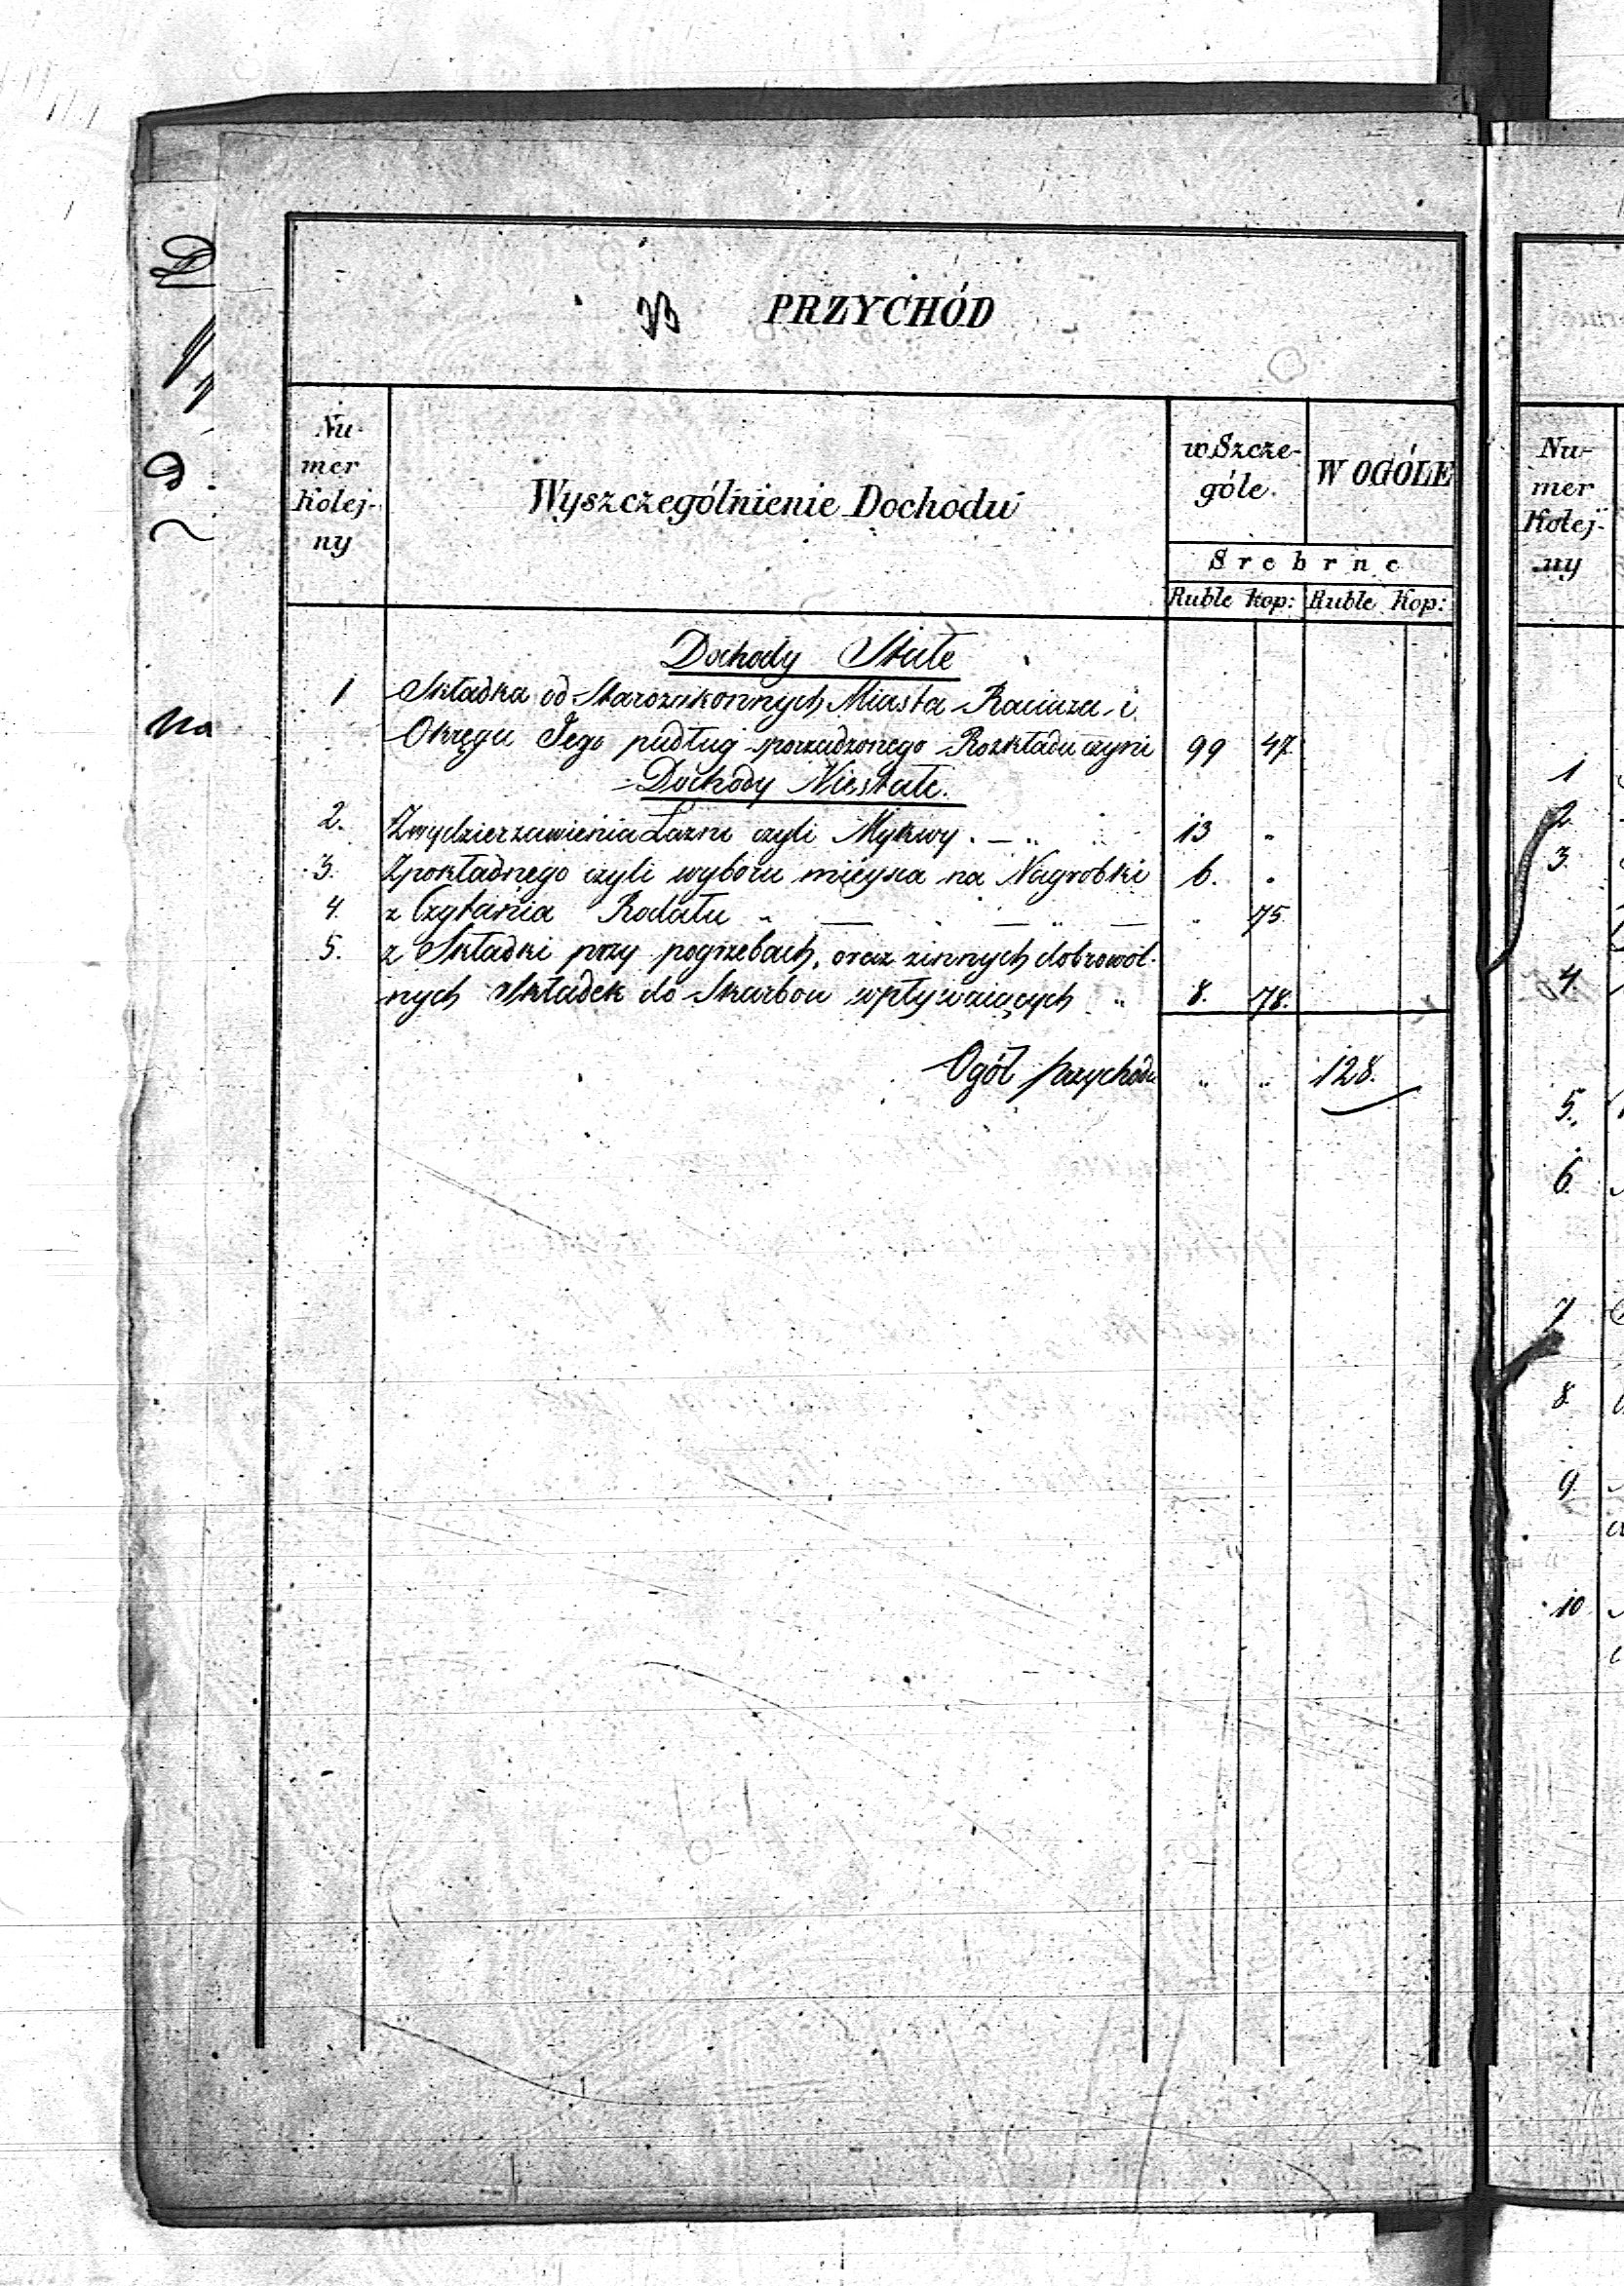 PRZYCHÓD
Nu-
mer
Kolej-
ny
Wyszczególnienie Dochodu
w Szcze-
góle.
W OGÓLE
Srebrne
Ruble Kop: Ruble Kop:
Dochody Stałe
1 Składka od Starozakonnych Miasta Raciąża i
Okręgu Jego podług sporządzonego Rozkładu czyni 99 47.
Dochody Niestałe.
2. Zwydzierzawienia Łazni czyli Mykwy . — „ 13 „
3. Zpokładnego czyli wyboru mieysca na Nagrobki 6. „
4. z Czytania Rodału „ — „ — „ — „ 75.
5. z Składki przy pogrzebach, oraz zinnych dobrowol-
nych Składek do Skarbon wpływaiących „ 8. 78.
Ogół przychodu „ „ 128.
na
Nu-
mer
Kolej-
ny
1
2
3.
4.
5.
6.
7
8
9.
10